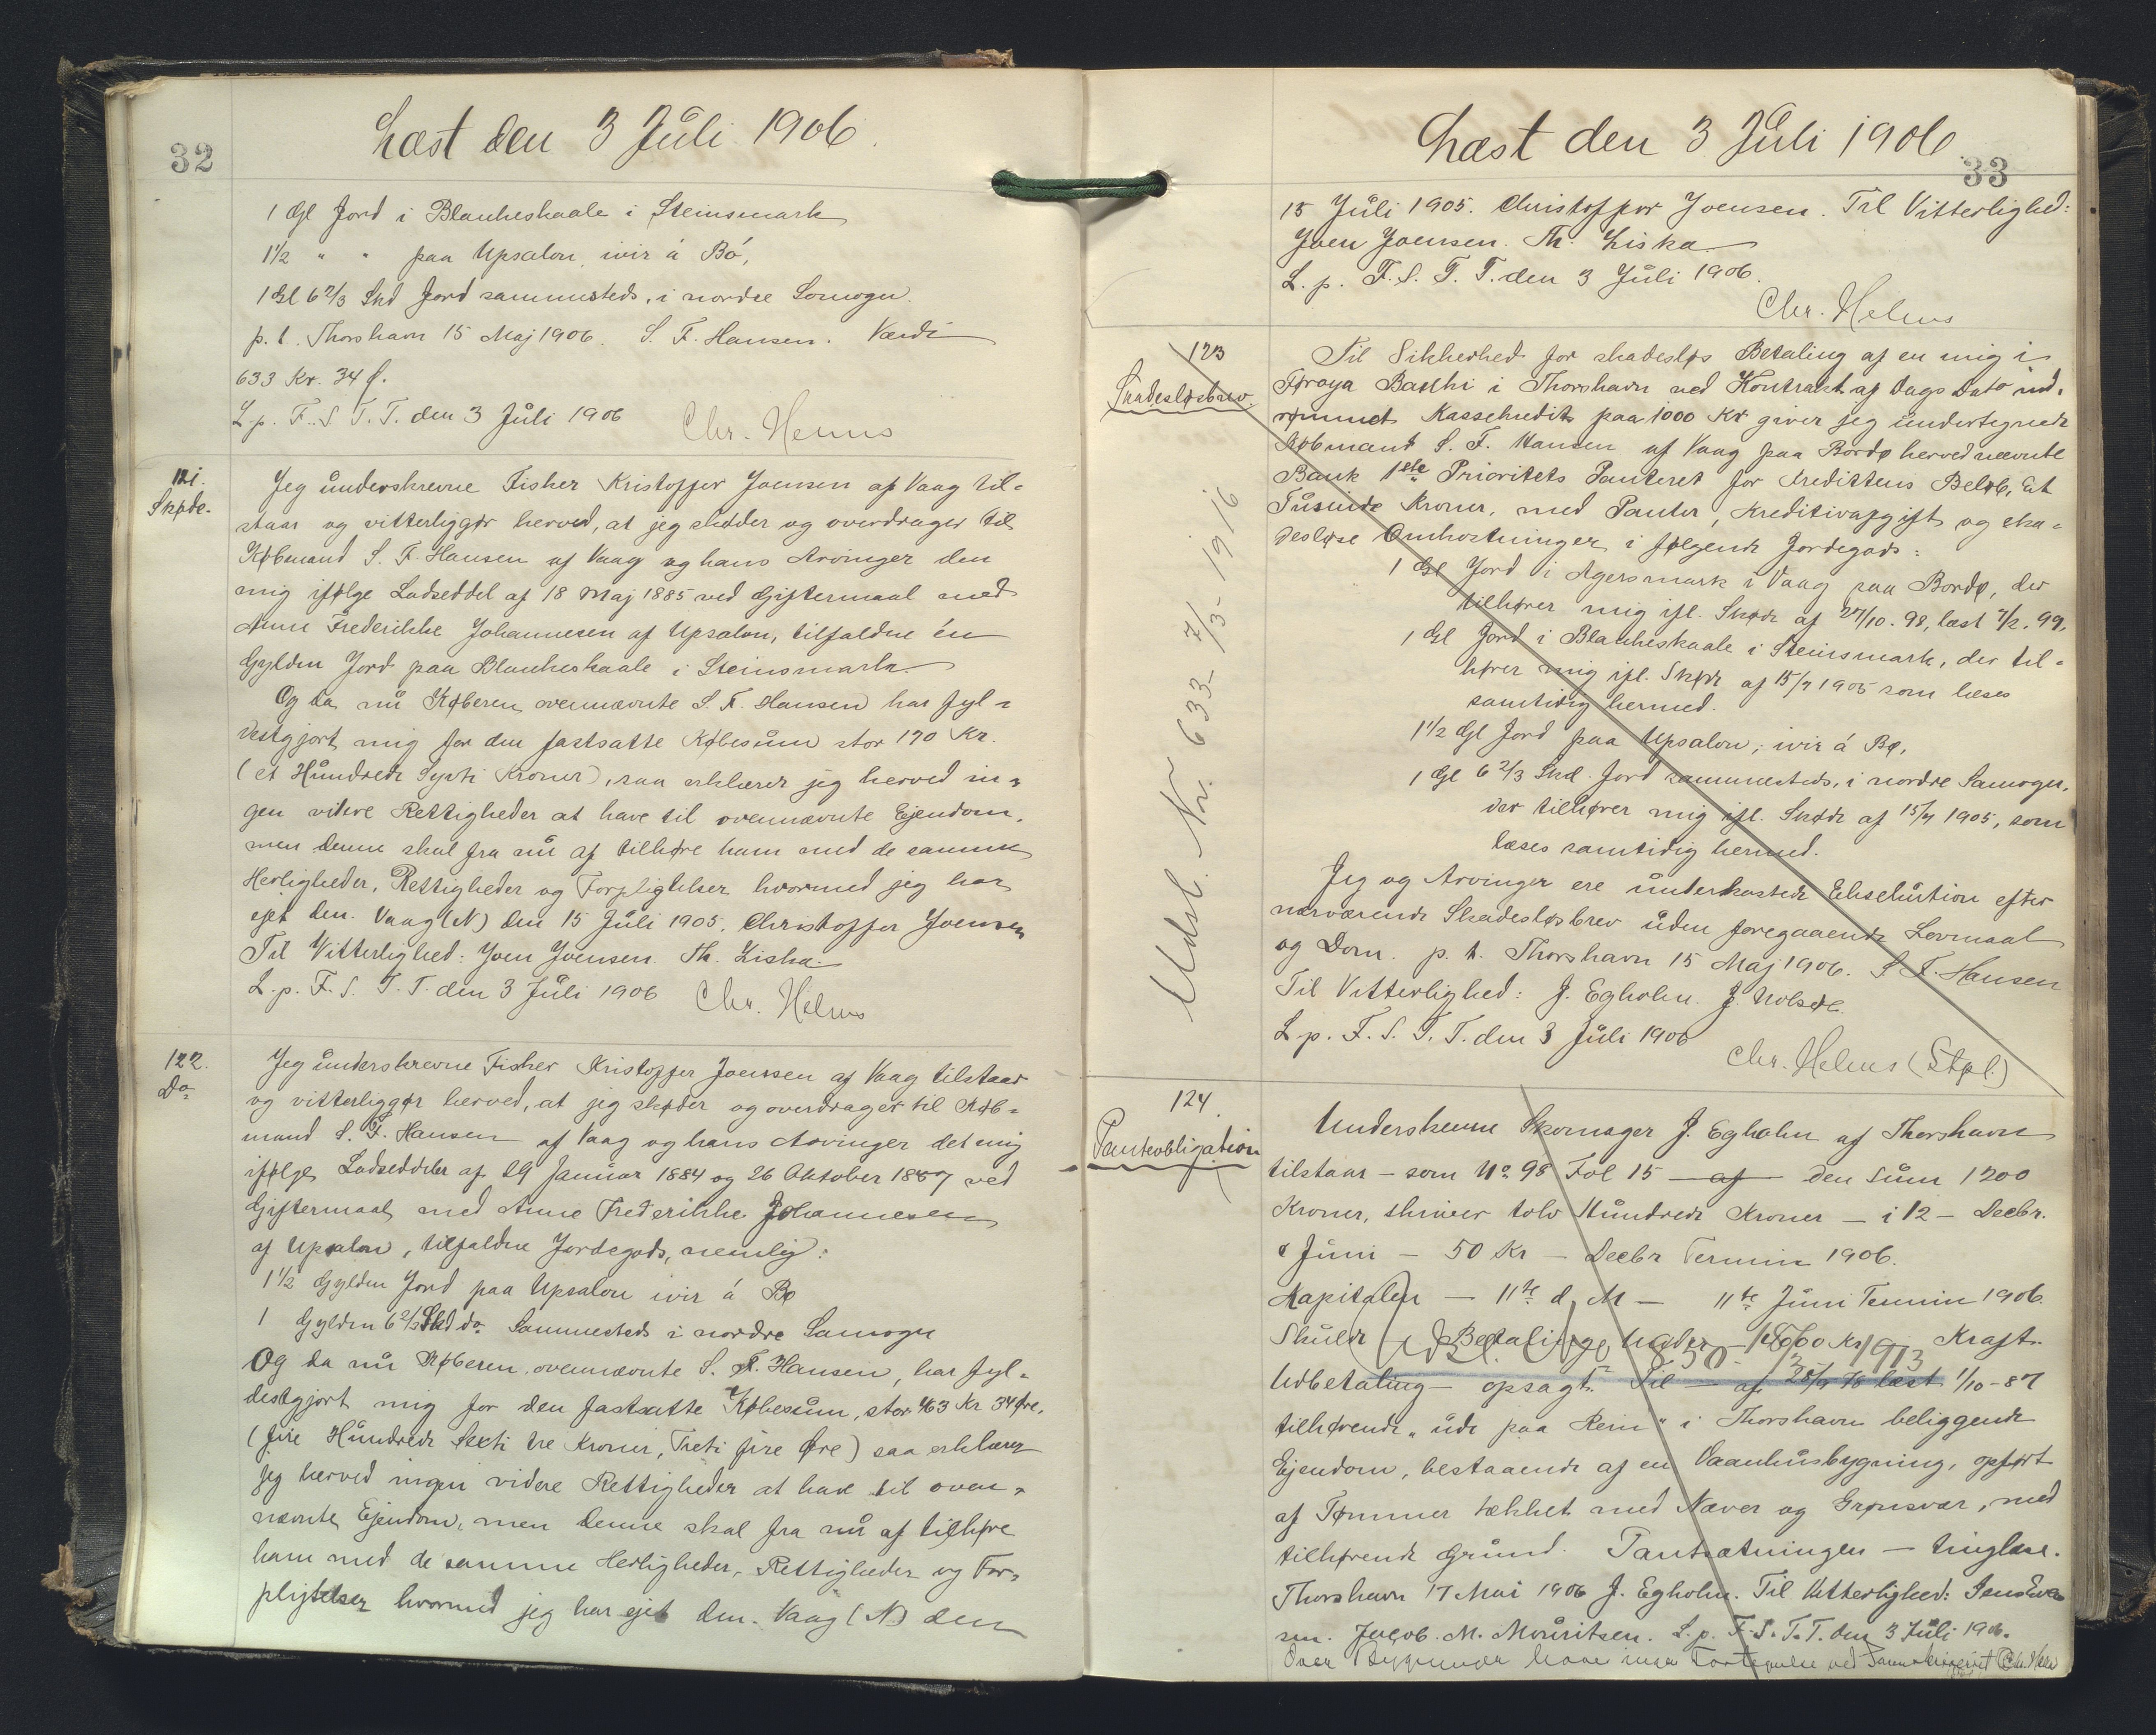 32
Læst den 3 Juli 1906.
1 Gl Jord i Blankeskaale i Steinsmark
1½ " " paa Upsalon ivir á Bó,
1 Gl 6 2/3 Skd Jord sammesteds, i nordre Samogn.
p. t. Thorshavn 15 Maj 1906. S. F. Hansen. Værdi
633 Kr. 34 ø.
L. p. F. S. T. T. den 3 Juli 1906 Chr. Helms
121.
Skøde.
Jeg underskrevne Fisker Kristoffer Joensen af Vaag til-
staar og vitterliggør herved, at jeg skøder og overdrager til
Købmand S. F. Hansen af Vaag og hans Arvinger den
mig ifølge Lodseddel af 18 Maj 1885 ved Giftermaal med
Anne Frederikke Johannesen af Upsalon, tilfaldne én
Gylden Jord paa Blankeskaale i Steinsmark.
Og da nu Køberen ovennævnte S. F. Hansen har fyl-
destgjort mig for den fastsatte Købesum stor 170 Kr.
(et Hundrede Sytti Kroner), saa erklærer jeg herved in-
gen videre Rettigheder at have til ovennævnte Ejendom,
men denne skal fra nu af tilhøre ham med de samme
Herligheder, Rettigheder og Forpligtelser hvormed jeg har
ejet den. Vaag (N) den 15 Juli 1905. Christoffer Joensen
Til Vitterlighed: Joen Joensen. Th. Liska.
L. p. F. S. T. T. den 3 Juli 1906 Chr. Helms
122.
Do
Jeg underskrevne Fisker Kristoffer Joensen af Vaag tilstaar
og vitterliggør herved, at jeg skøder og overdrager til Køb-
mand S. F. Hansen af Vaag og hans Arvinger det mig
ifølge Lodseddeler af 29 Januar 1884 og 26 Oktober 1887 ved
Giftermaal med Anne Frederikke Johannesen
af Upsalon, tilfaldne Jordegods, nemlig:
1½ Gylden Jord paa Upsalon ivir á Bø
1 Gylden 6 2/3 Skd do Sammesteds i nordre Samogn
Og da nu Køberen, ovennævnte S. F. Hansen, har fyl-
destgjort mig for den fastsatte Købesum, stor 463 Kr 34 Øre,
(fire Hundrede Sexti tre Kroner, Treti fire Øre) saa erklærer
jeg herved ingen videre Rettigheder at have til oven-
nævnte Ejendom, men denne skal fra nu af tilhøre
ham med de samme Herligheder, Rettigheder og For-
pligtelser hvormed jeg har ejet den. Vaag (N) den
33
Læst den 3 Juli 1906.
15 Juli 1905. Christoffer Joensen. Til Vitterlighed:
Joen Joensen. Th. Liska
L. p. F. S. T. T. den 3 Juli 1906.
Chr. Helms
123
Skadesløsbrev.
Udsl. Nr. 633 - 7/3 - 1916
Til Sikkerhed for skadesløs Betaling af en mig i
Føroya Banki i Thorshavn ved Kontrakt af Dags Dato ind-
rømmet Kassekredit paa 1000 Kr giver jeg undertegnede
Købmand S. F. Hansen af Vaag paa Bordø herved nævnte
Bank 1ste Prioritets Panteret for Kredittens Beløb, Et
Tusinde Kroner, med Renter, Kreditivafgift og ska-
desløse Omkostninger i følgende Jordegods:
1 Gl Jord i Agersmark i Vaag paa Bordø, der
tilhører mig ifl. Skøde af 27/10. 98, læst 7/2. 99,
1 Gl Jord i Blankeskaale i Steinsmark, der til-
hører mig ifl. Skøde af 15/7 1905 som læses
samtidig hermed.
1½ Gl Jord paa Upsalon, ivir á Bø,
1 Gl 6 2/3 Skd. Jord sammesteds, i nordre Samogn,
der tilhører mig ifl. Skøde af 15/7 1905, som
læses samtidig hermed.
Jeg og Arvinger ere underkastede Eksekution efter
nærværende Skadesløsbrev uden foregaaende Lovmaal
og Dom. p. t. Thorshavn 15 Maj 1906. S F. Hansen
Til Vitterlighed: J. Egholm. J. Nolsøe.
L. p. F. S. T. T. den 3 Juli 1906
Chr. Helms (Stpl.)
124.
Panteobligation
Underskrevne Skomager J. Egholm af Thorshavn
tilstaar - som No 98 Fol 15 - af - den Sum 1200
Kroner, skriver tolv Hundrede Kroner - i 12 - Decbr.
& Juni - 50 Kr - Decbr Termin 1906.
Kapitalen - 11te d. M - 11te Juni Termin 1906.
Skulde - Betalinge - Kraft.
Udsl. No 850 - 1913
Udbetaling - opsagt. Til - af 28/9 78 læst 1/10 - 87
tilhørende "ude paa Rein" i Thorshavn beliggende
Ejendom, bestaaende af en Vaanhusbygning, opført
af Tømmer tækket med Næver og Grønsvær, med
tilhørende Grund. Pantsætningen - tinglæse.
Thorshavn 17 Mai 1906 J. Egholm. Til Vitterlighed: Jens
sen. Jacob. M. Mouritsen. L. p. F. S. T. T. den 3 Juli 1906.